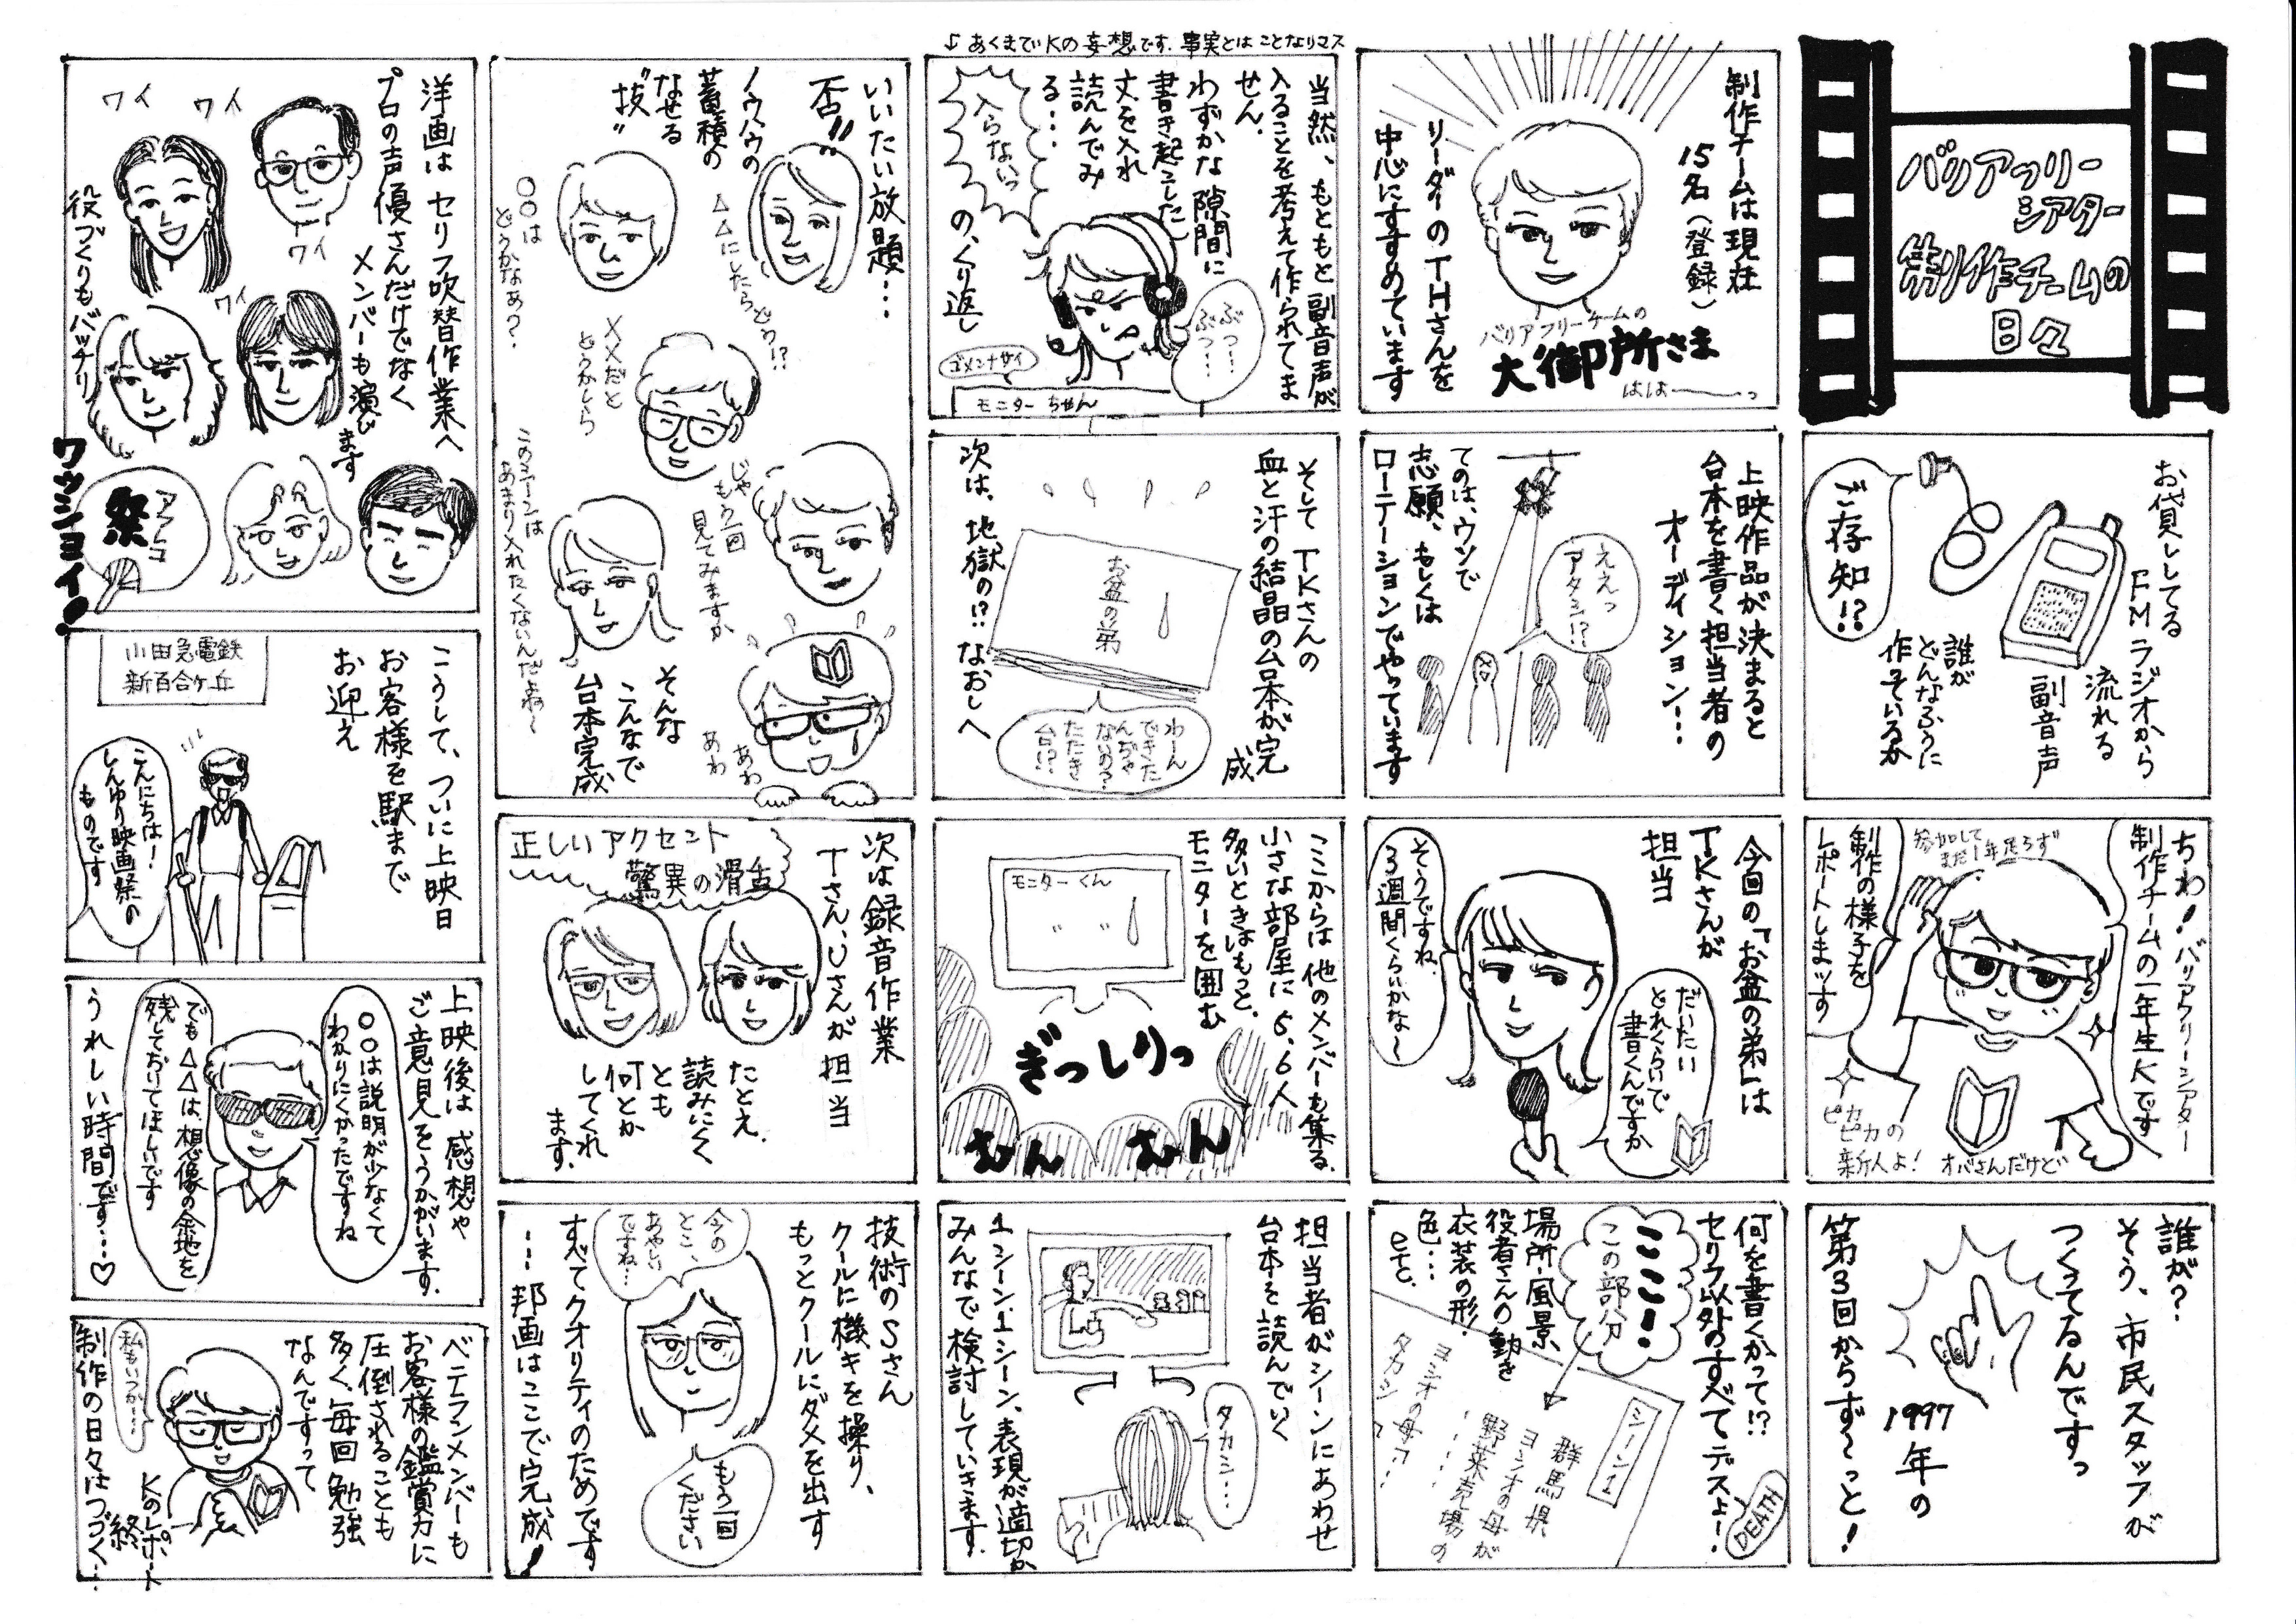 バリアフリー
シアター
制作チームの
日々
お貸ししてる
FMラジオから
流れる
副音声
誰が
どんなふうに
作っているか
ご存知!?
ちわ!バリアフリーシアター
制作チームの一年生Kです
参加して
まだ1年足らず
制作の様子を
レポートしまッす
ピカ
ピカの
新人よ!オバさんだけど
誰が?
そう、市民スタッフが
つくってるんですっ
1997年の
第3回からず〜っと!
制作チームは現在
15名(登録)
リーダーのTHさんを
中心にすすめています
バリアフリーチームの
大御所さま
ははーーっ
上映作品が決まると
台本を書く担当者の
オーディション…
ええっ
アタシ!?
てのは、ウソで
志願、もしくは
ローテーションでやっています
今回の「お盆の弟」は
TKさんが
担当
だいたい
どれくらいで
書くんですか
そうですね、
3週間くらいかな〜
何を書くかって!?
セリフ以外のすべてデスよ!
DEATH
ここ!
この部分
場所・風景、
役者さんの動き
衣装の形・
色…
etc.
シーン1
群馬県
ヨシオの母が
野菜売場の
ヨシオの母「…
タカシ「…
↓あくまでKの妄想です.事実とはことなりマス
当然、もともと副音声が
入ることを考えて作られてま
せん.
わずかな隙間に
書き起こした
文を入れ
読んでみ
る…
入らないっ
の、くり返し
ぶつ…
ぶつ…
ゴメンナサイ
モニターちゃん
そしてTKさんの
血と汗の結晶の台本が完
成
お盆の弟
わーん
できた
んぢゃ
ないの?
たたき
台!?
次は、地獄の!?なおしへ
ここからは他のメンバーも集る.
小さな部屋に5、6人
多いときはもっと、
モニターを囲む
モニターくん
ぎっしりっ
むん むん
担当者がシーンにあわせ
台本を読んでいく
タカシ…
1シーン1シーン、表現が適切か
みんなで検討していきます.
いいたい放題…
否!!
ノウハウの
蓄積の
なせる
"技"
△△にしたらどう!?
○○は
どうかなあ?
××だと
どうかしら
じゃ
もう一回
見てみますか
このシーンは
あまり入れたくないんだよね〜
あわ
あわ
そんな
こんなで
台本完成
次は録音作業
Tさん、Uさんが担当
正しいアクセント
驚異の滑舌
たとえ、
読みにくく
とも
何とか
してくれ
ます.
技術のSさん
クールに機キを操り、
もっとクールにダメを出す
今の
とこ、
あやしい
ですね…
もう一回
ください
すべてクオリティのためです
…邦画はここで完成!
洋画はセリフ吹替作業へ
プロの声優さんだけでなく
メンバーも演じ
ます
役づくりもバッチリ
ワイ
ワイ
ワイ
ワイ
アフレコ
祭
ワッショイ!
こうして、ついに上映日
お客様を駅まで
お迎え
小田急電鉄
新百合ヶ丘
こんにちは!
しんゆり映画祭の
ものです
上映後は感想や
ご意見をうかがいます.
○○は説明が少なくて
わかりにくかったですね
でも△△は、想像の余地を
残しておいてほしいです
うれしい時間です…♡
ベテランメンバーも
お客様の鑑賞力に
圧倒されることも
多く、毎回勉強
なんですって
私もいつか…
Kのレポート
終
制作の日々はつづく…